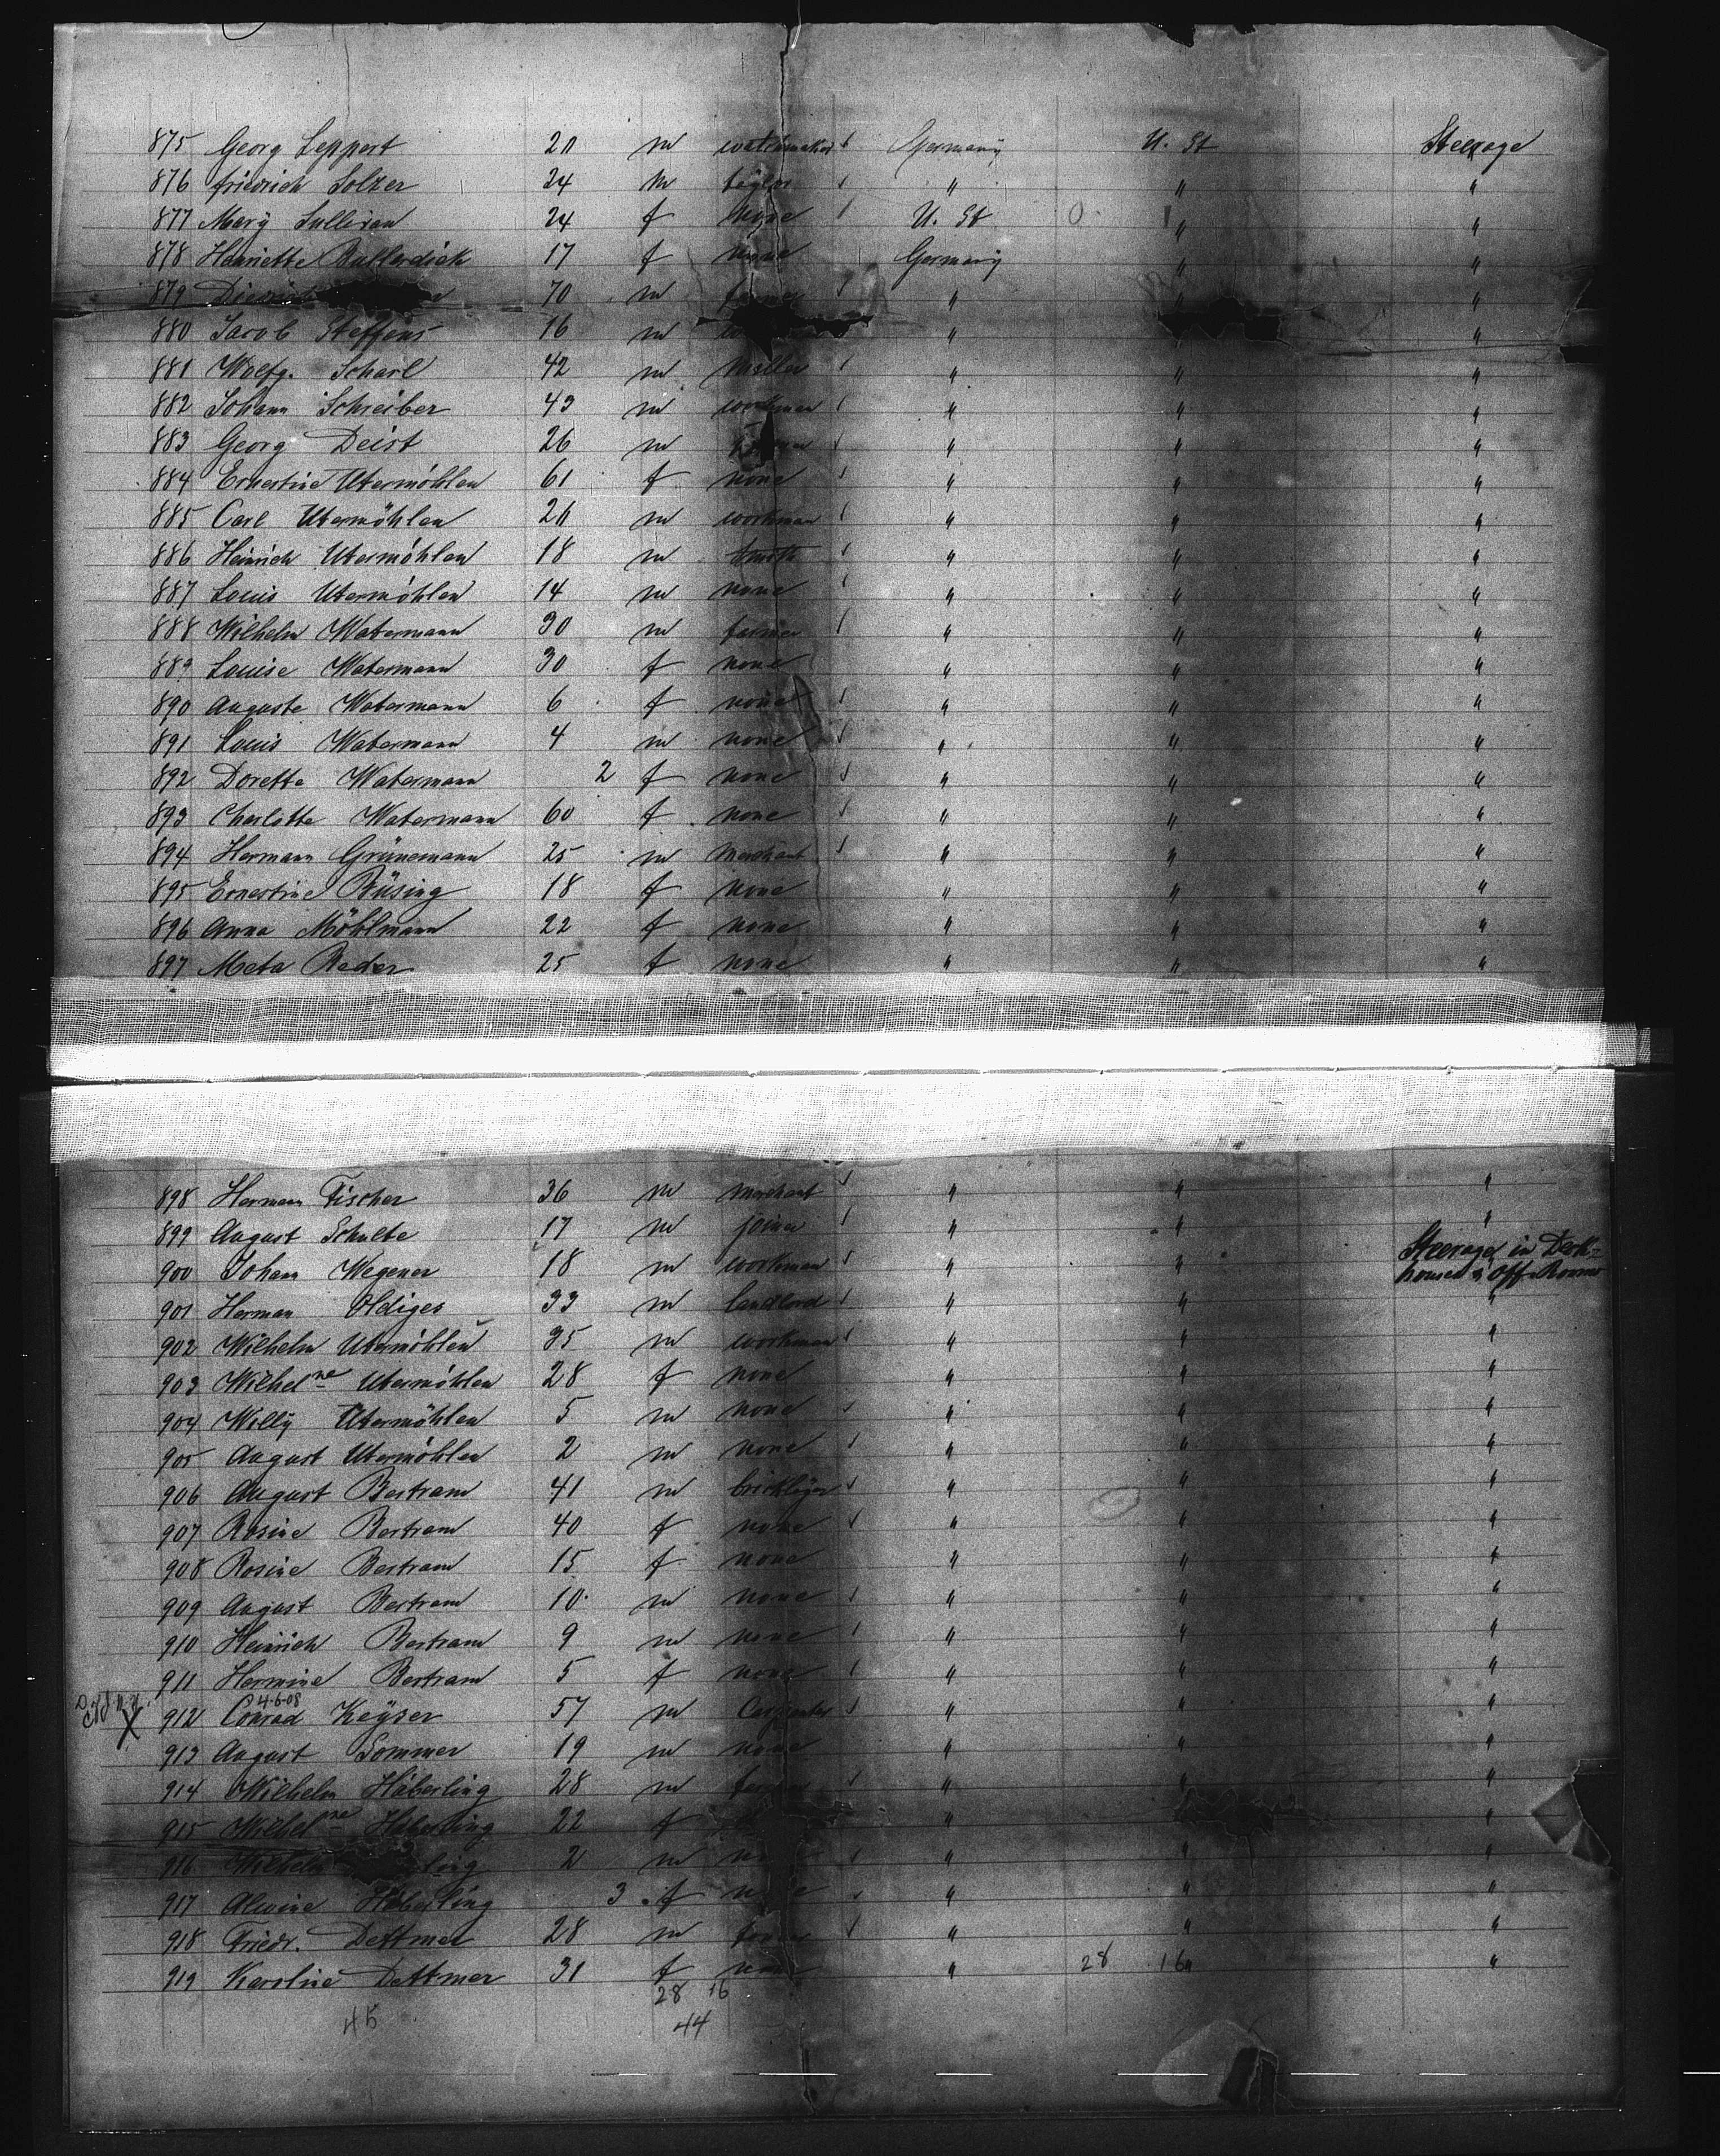 875 Georg Leppert 21 m watchmaker Germany U. St Steerage
876 friedrich Solzer 24 m taylor " " "
877 Mary Sullivan 24 f none U. St " "
878 Henriette Bullerdiek 17 f none Germany " "
879 70 m farmer " " "
880 Jacob Steffens 16 m " " "
881 Wolfg. Scharl 42 m Miller " " "
882 Johann Schreiber 43 m workman " " "
883 Georg Deist 26 m " " "
884 Ernestine Utermöhlen 61 f none " " "
885 Carl Utermöhlen 21 m workman " " "
886 Heinrich Utermöhlen 18 m smith " " "
887 Louis Utermöhlen 14 m none " " "
888 Wilhelm Watermann 30 m farmer " " "
889 Louise Watermann 30 f none " " "
890 Auguste Watermann 6 f none " " "
891 Louis Watermann 4 m none " " "
892 Dorette Watermann 2 f none " " "
893 Charlotte Watermann 60 f none " " "
894 Hermann Grünemann 25 m Merchant " " "
895 Ernestine Büsing 18 f none " " "
896 Anna Möhlmann 22 f none " " "
897 Meta Reder 25 f none " " "
898 Hermann Fischer 36 m merchant " " "
899 August Schulte 17 m joiner " " "
900 Johann Wegener 18 m workman " " Steerage in Deck= houses & Off. Rooms
901 Herman Oldiges 33 m landlord " " "
902 Wilhelm Utermöhlen 35 m workman " " "
903 Wilhelne Utermöhlen 28 f none " " "
904 Willÿ Utermöhlen 5 m none " " "
905 August Utermöhlen 2 m none " " "
906 August Bertram 41 m bricklayer " " "
907 Rosine Bertram 40 f none " " "
908 Rosine Bertram 15 f none " " "
909 August Bertram 10 m none " " "
910 Heinrich Bertram 9 m none " " "
911 Hermine Bertram 5 f none " " "
4-6-08
X 912 Conrad Keÿser 57 m Carpenter " " "
913 August Sommer 19 m none " " "
914 Wilhelm Häberling 28 m farmer " " "
915 Wilhelne Häberling 22 f " " "
916 Wilhelm 2 m " " "
917 Alwine Häberling 3 f none " " "
918 Friedr. Dettmer 28 m " " "
919 Karoline Dettmer 31 f none " 28 16 " "
28 16
45 44